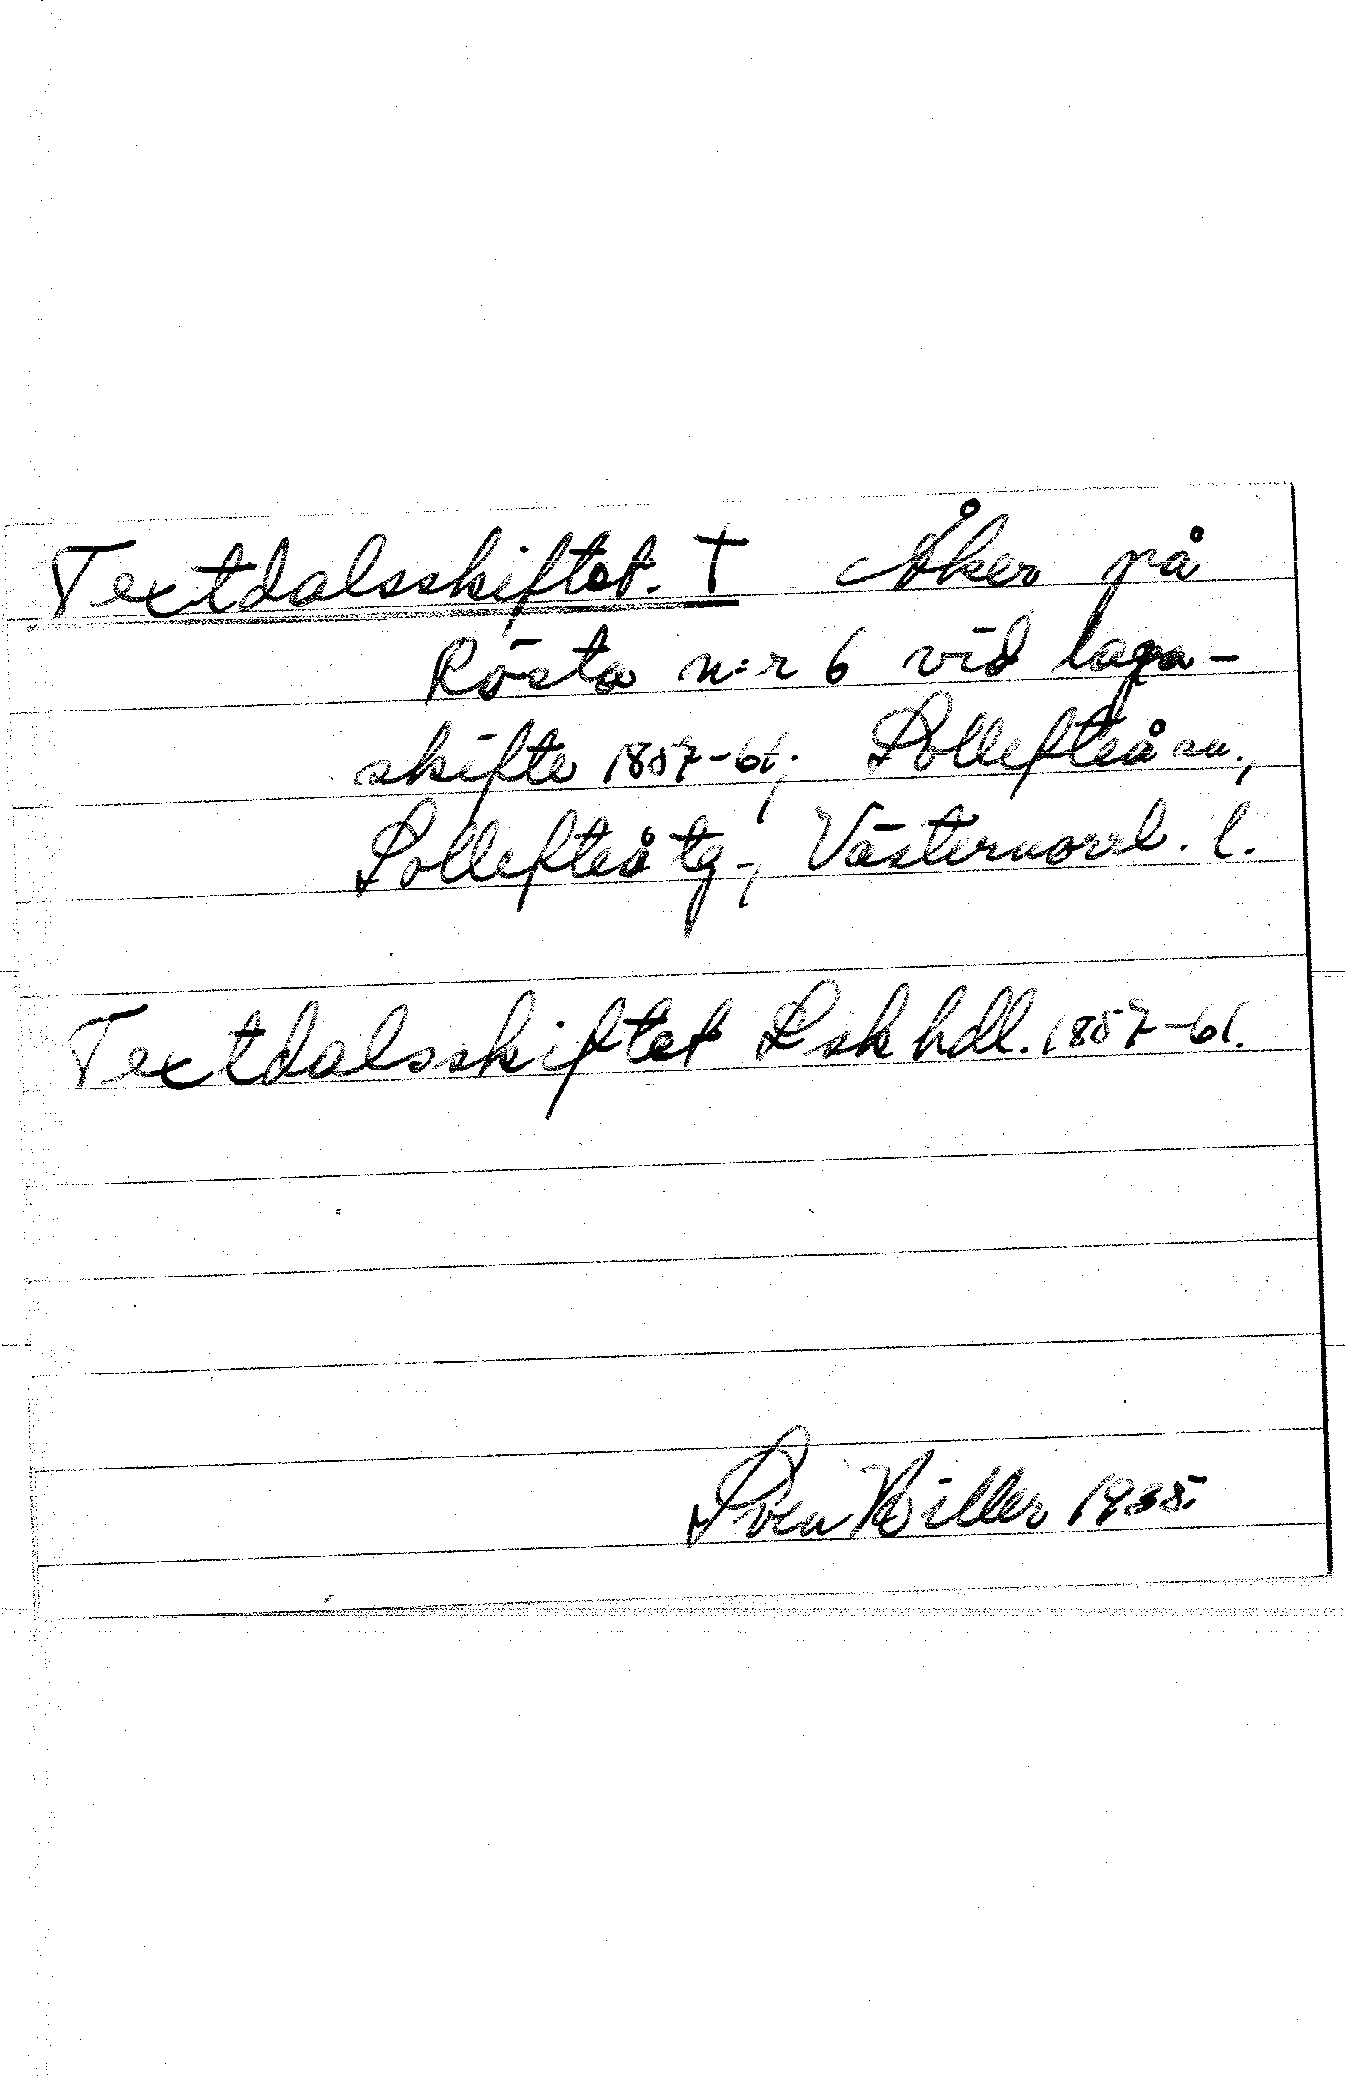 Textdalsskiftet. † Åker på
Rösta n:r 6 vid laga-
skifte 1857-61; Sollefteå sn.,
Sollefteå tg-, Västernorrl. l.
Textdalsskiftet Lsk hdl. 1857-61.
Sven Willer 1935.